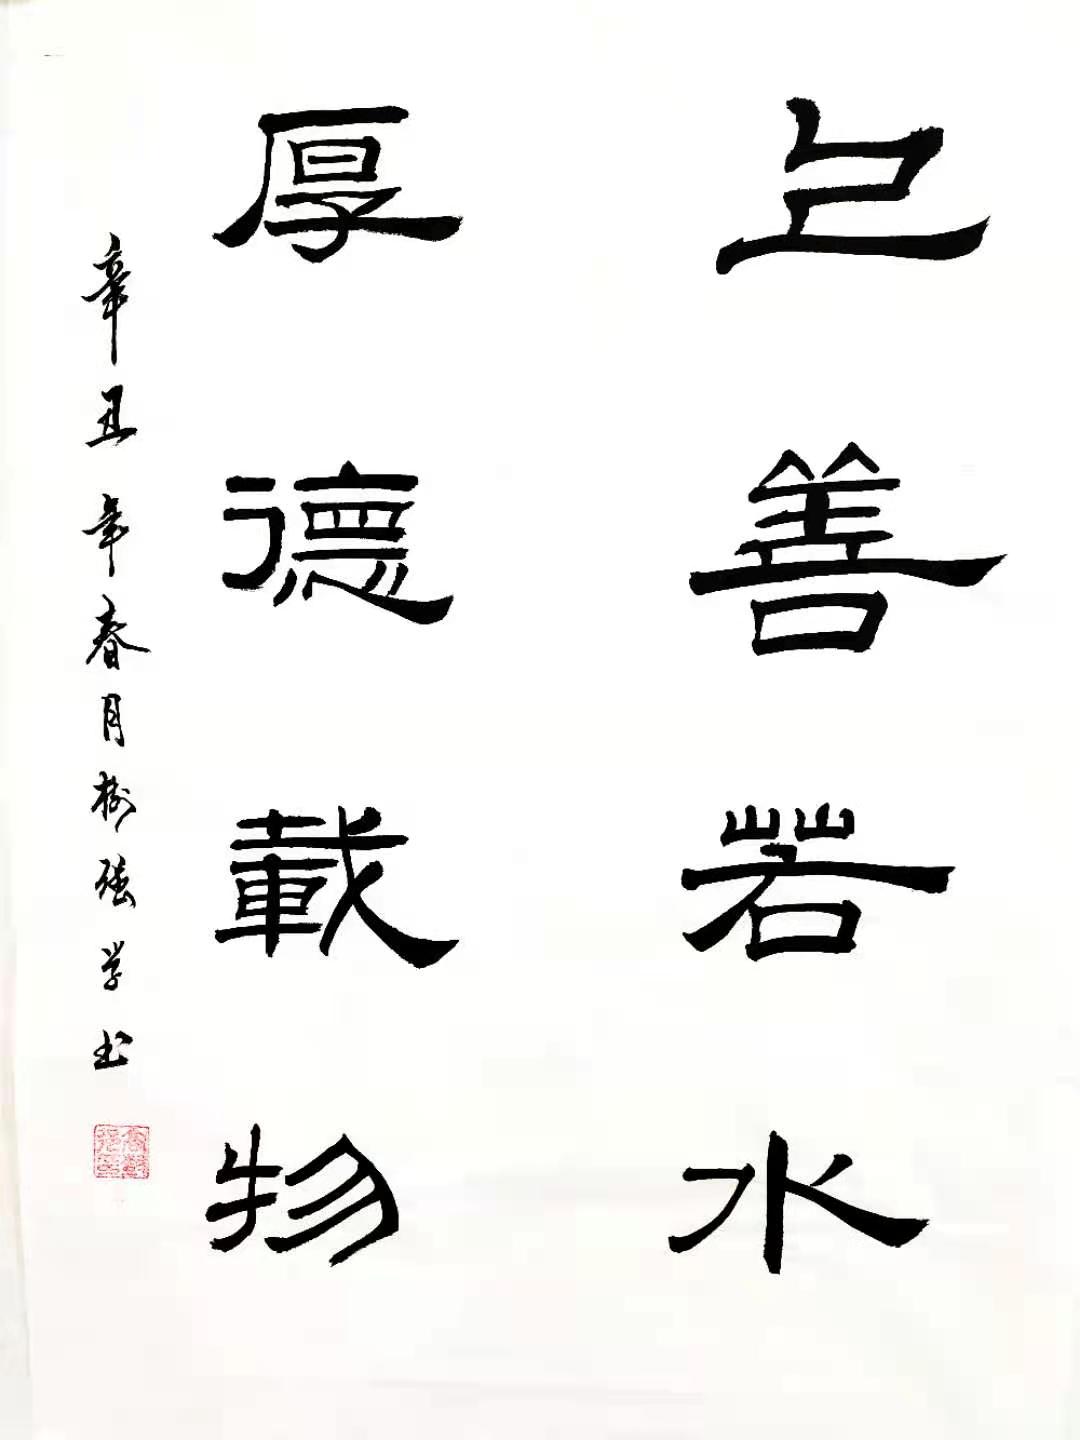 上善若水
厚德載物
辛丑年春月樹强学书